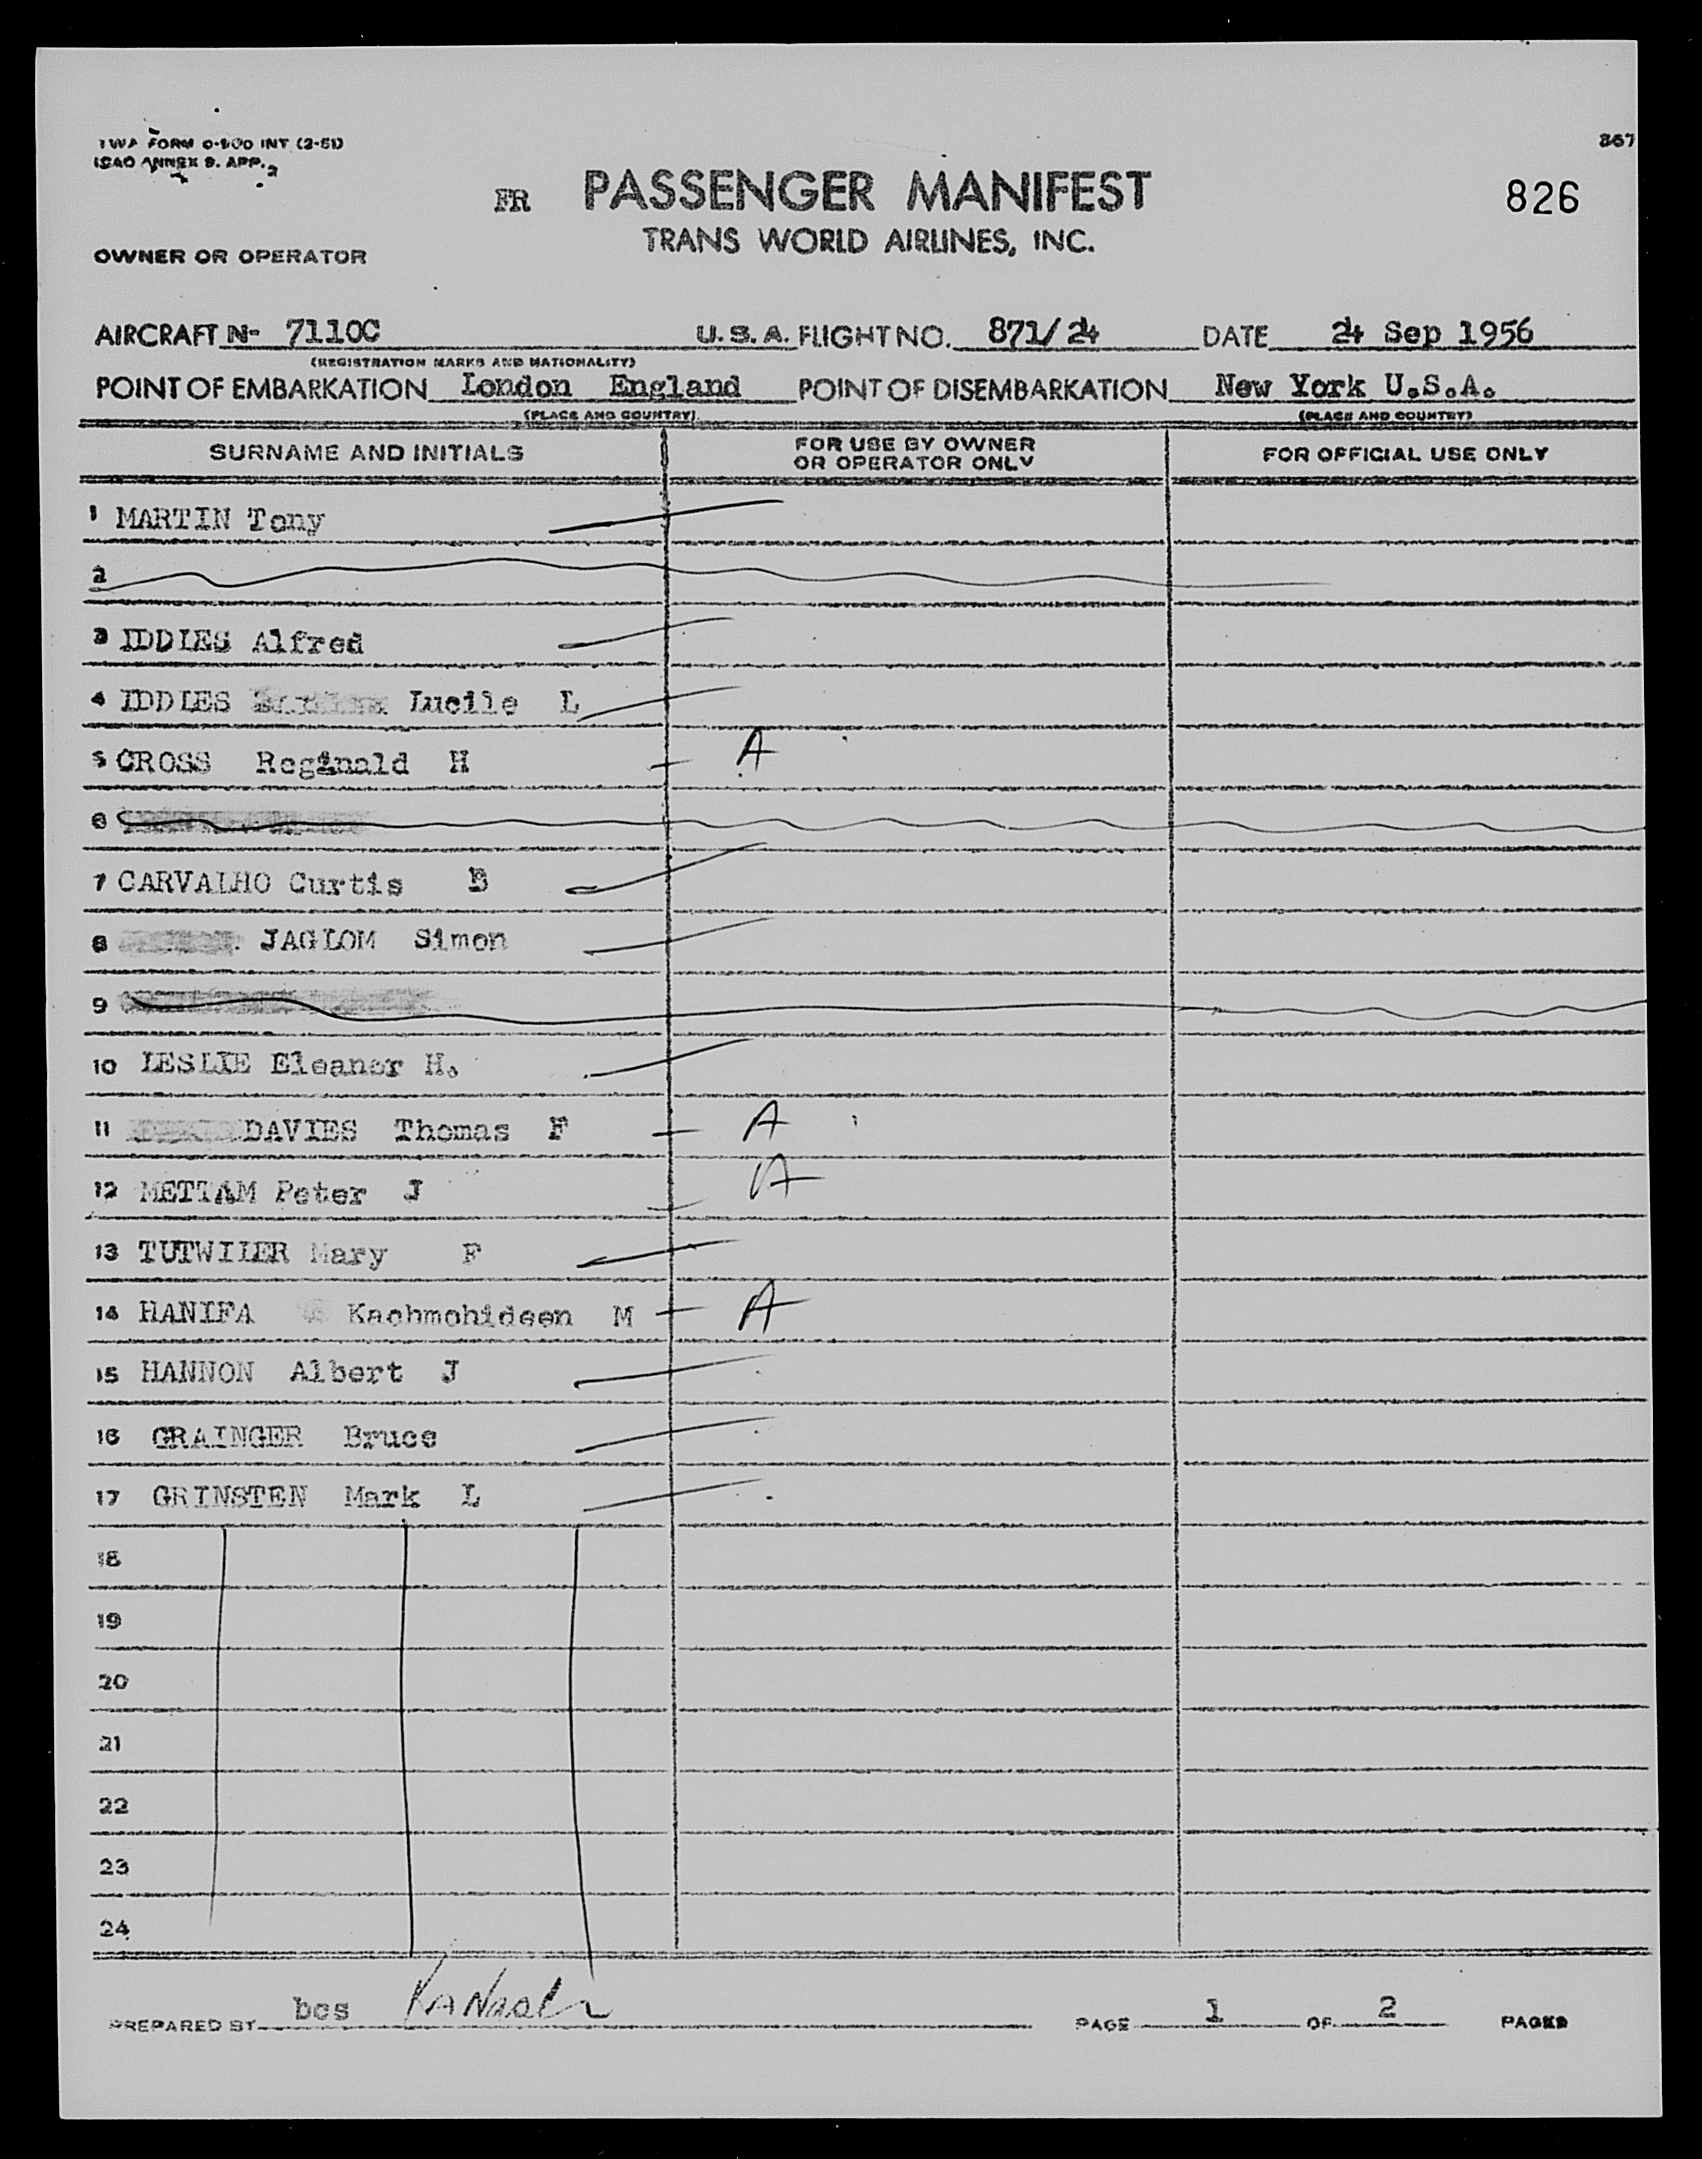 TWA FORM O-900 INT (2-51)
ICAO ANNEX 9. APP. 2
867
FR PASSENGER MANIFEST 826
TRANS WORLD AIRLINES, INC.
OWNER OR OPERATOR
AIRCRAFT N- 7110C U.S.A. FLIGHT NO. 871/24 DATE 24 Sep 1956
(REGISTRATION MARKS AND NATIONALITY)
POINT OF EMBARKATION London England POINT OF DISEMBARKATION New York U.S.A.
(PLACE AND COUNTRY) (PLACE AND COUNTRY)
SURNAME AND INITIALS FOR USE BY OWNER OR OPERATOR ONLY FOR OFFICIAL USE ONLY
1 MARTIN Tony
2
3 IDDIES Alfred
4 IDDIES Lucile L
5 CROSS Reginald H A
6
7 CARVALHO Curtis B
8 JAGLOM Simon
9
10 LESLIE Eleanor H.
11 DAVIES Thomas F A
12 METTAM Peter J A
13 TUTWILER Mary F
14 HANIFA Kachmohideen M A
15 HANNON Albert J
16 GRAINGER Bruce
17 GRINSTEN Mark L
18
19
20
21
22
23
24
PREPARED BY bcs PAGE 1 OF 2 PAGES